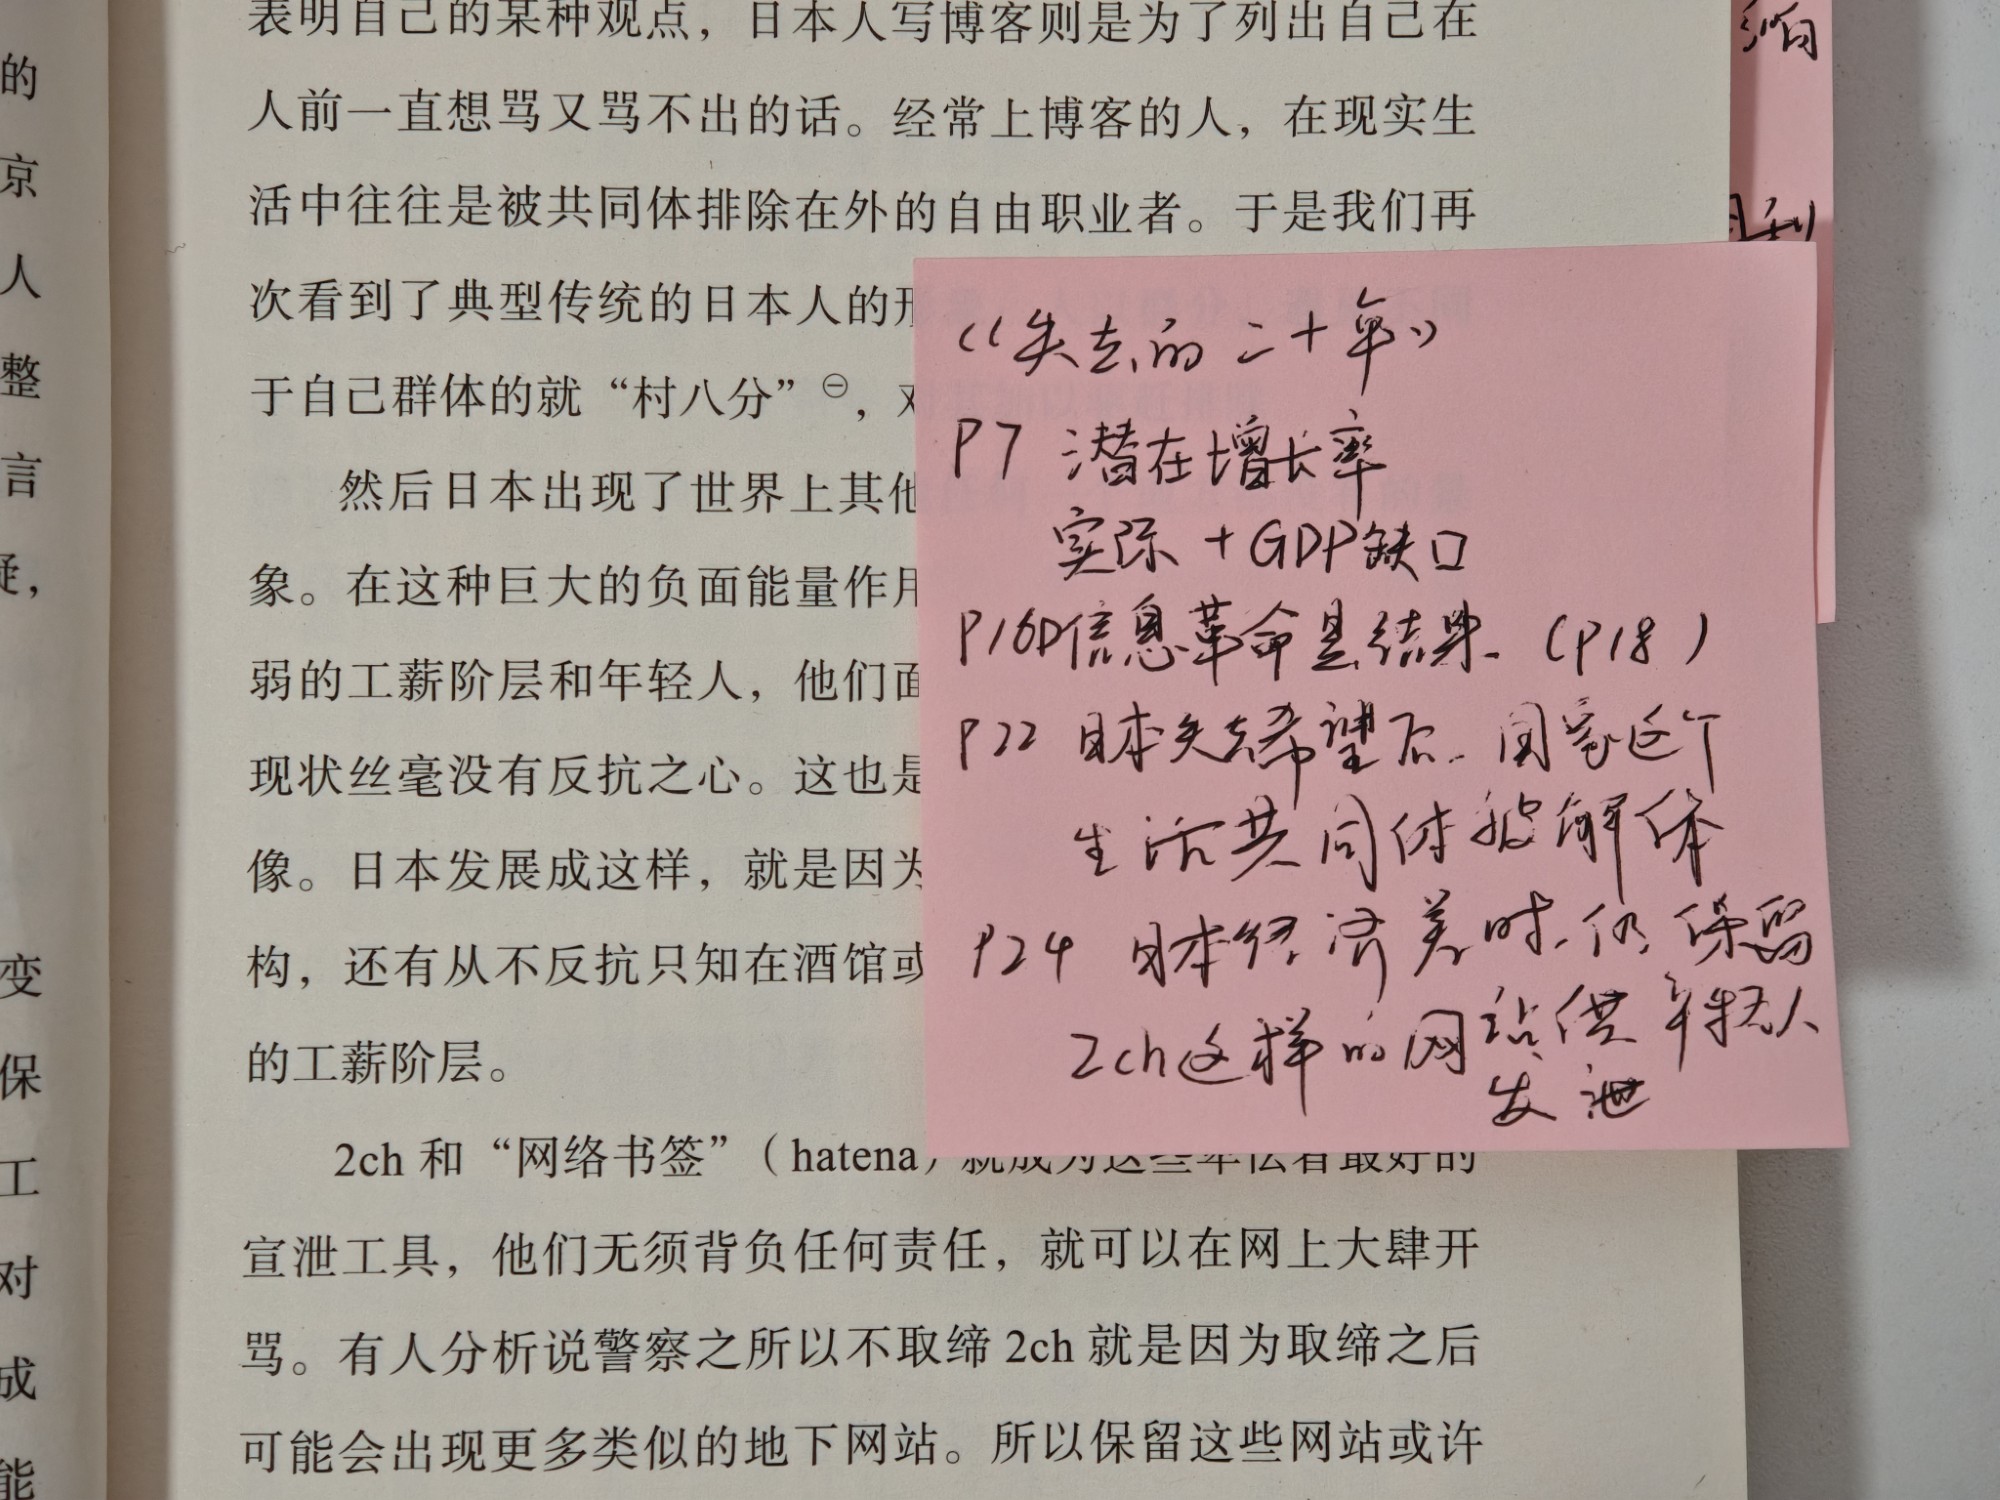 表明自己的某种观点，日本人写博客则是为了列出自己在
人前一直想骂又骂不出的话。经常上博客的人，在现实生
活中往往是被共同体排除在外的自由职业者。于是我们再
次看到了典型传统的日本人的形
于自己群体的就“村八分”㊀，对
然后日本出现了世界上其他
象。在这种巨大的负面能量作用
弱的工薪阶层和年轻人，他们面
现状丝毫没有反抗之心。这也是
像。日本发展成这样，就是因为
构，还有从不反抗只知在酒馆或
的工薪阶层。
2ch 和“网络书签”（hatena）就成为这些年轻者最好的
宣泄工具，他们无须背负任何责任，就可以在网上大肆开
骂。有人分析说警察之所以不取缔 2ch 就是因为取缔之后
可能会出现更多类似的地下网站。所以保留这些网站或许
的
京
人
整
言
疑，
变
保
工
对
成
能
《失去的二十年》
P7 潜在增长率
实际 + GDP缺口
P16 信息革命是结果.（P18）
P22 日本失去希望后. 国家这个
生活共同体被解体
P24 日本经济差时. 仍保留
2ch这样的网站供年轻人
发泄